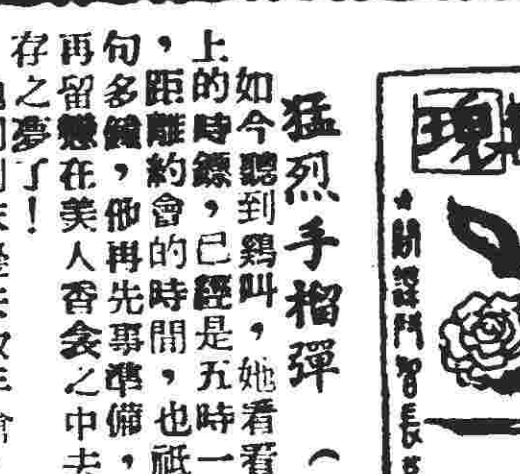 瑰
★間諜鬥智長
猛烈手榴彈（
如今聽到鷄叫，她看看
上的時鏢，已經是五時一
，距離約會的時間，也祇
句多鐘，他再先事準備，
再留戀在美人香衾之中去
存之夢了！